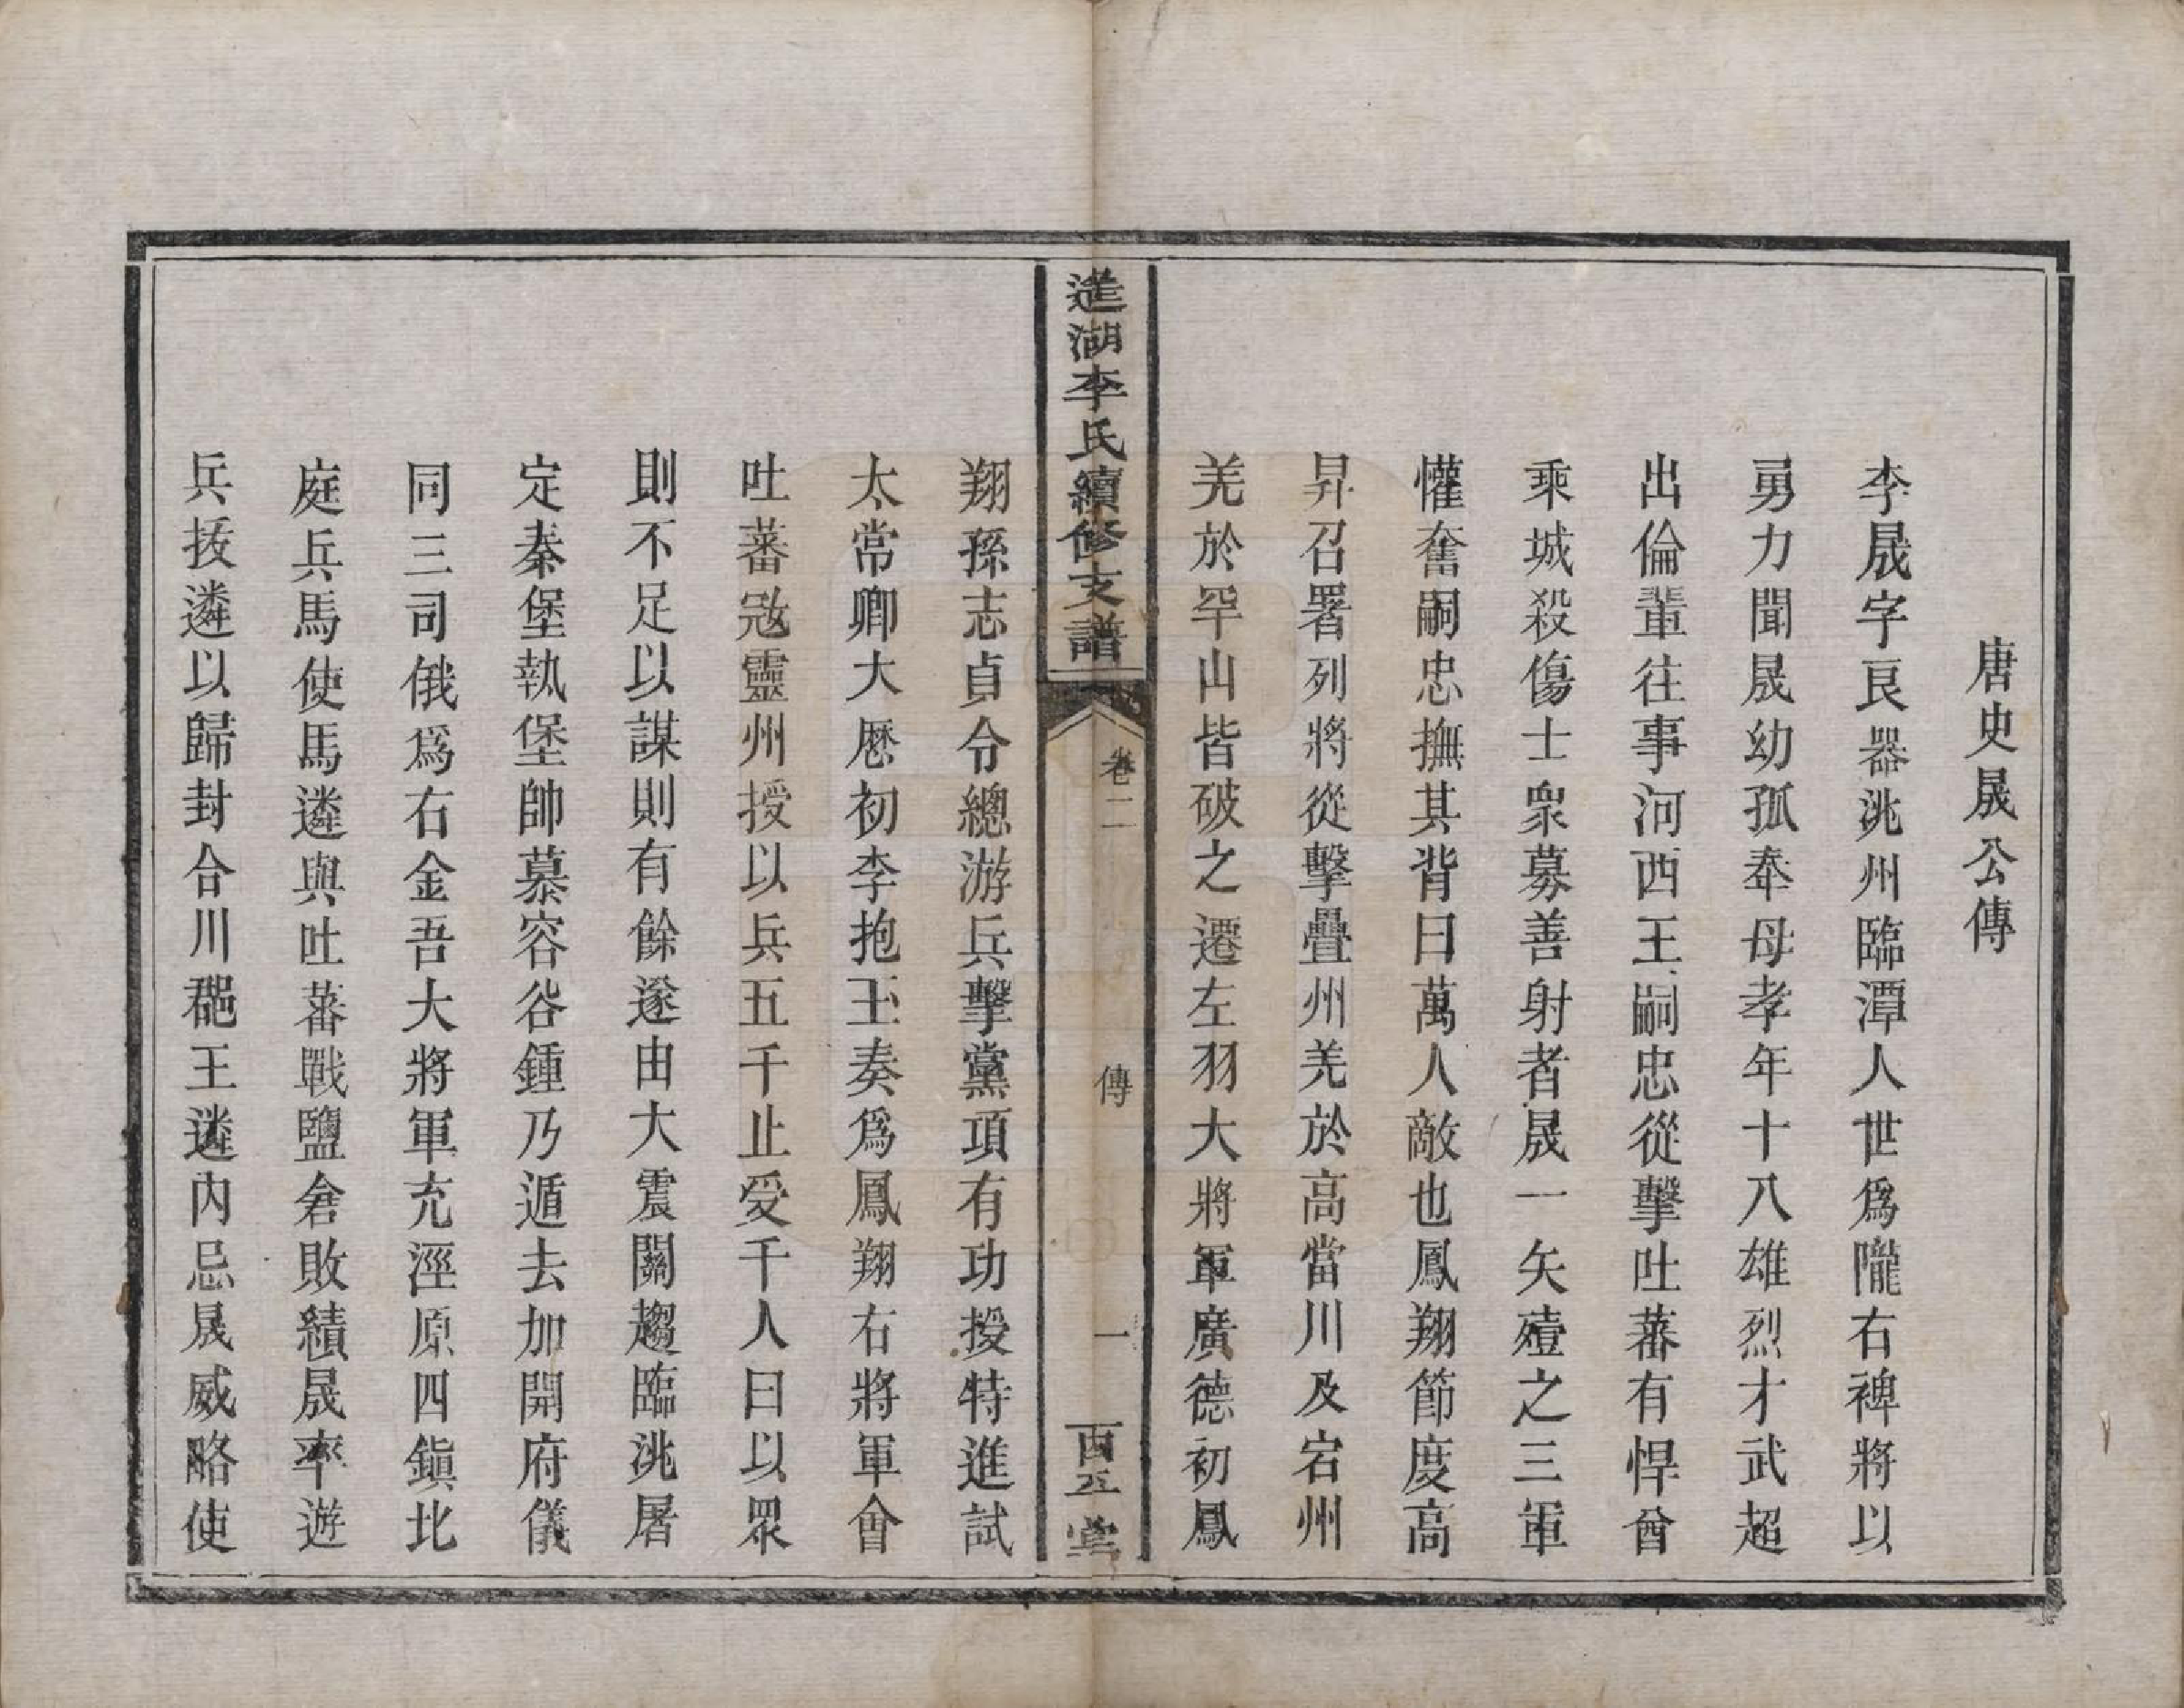 唐史晟公傳
李晟字良器洮州臨潭人世爲隴右裨將以
勇力聞晟幼孤奉母孝年十八雄烈才武超
出倫輩往事河西王嗣忠從擊吐蕃有悍酋
乘城殺傷士衆募善射者晟一矢殪之三軍
懽奮嗣忠撫其背曰萬人敵也鳳翔節度高
昇召署列將從擊疊州羌於高當川及宕州
羌於罕山皆破之遷左羽大將軍廣德初鳳
進湖李氏續修支譜
卷二
傳
一
百五堂
翔孫志貞令總游兵擊黨項有功授特進試
太常卿大厯初李抱玉奏爲鳳翔右將軍會
吐蕃宼靈州授以兵五千止受千人曰以眾
則不足以謀則有餘遂由大震關趨臨洮屠
定秦堡執堡帥慕容谷鍾乃遁去加開府儀
同三司俄爲右金吾大將軍充涇原四鎭北
庭兵馬使馬遴與吐蕃戰鹽倉敗績晟率遊
兵拔遴以歸封合川郡王遴内忌晟威略使